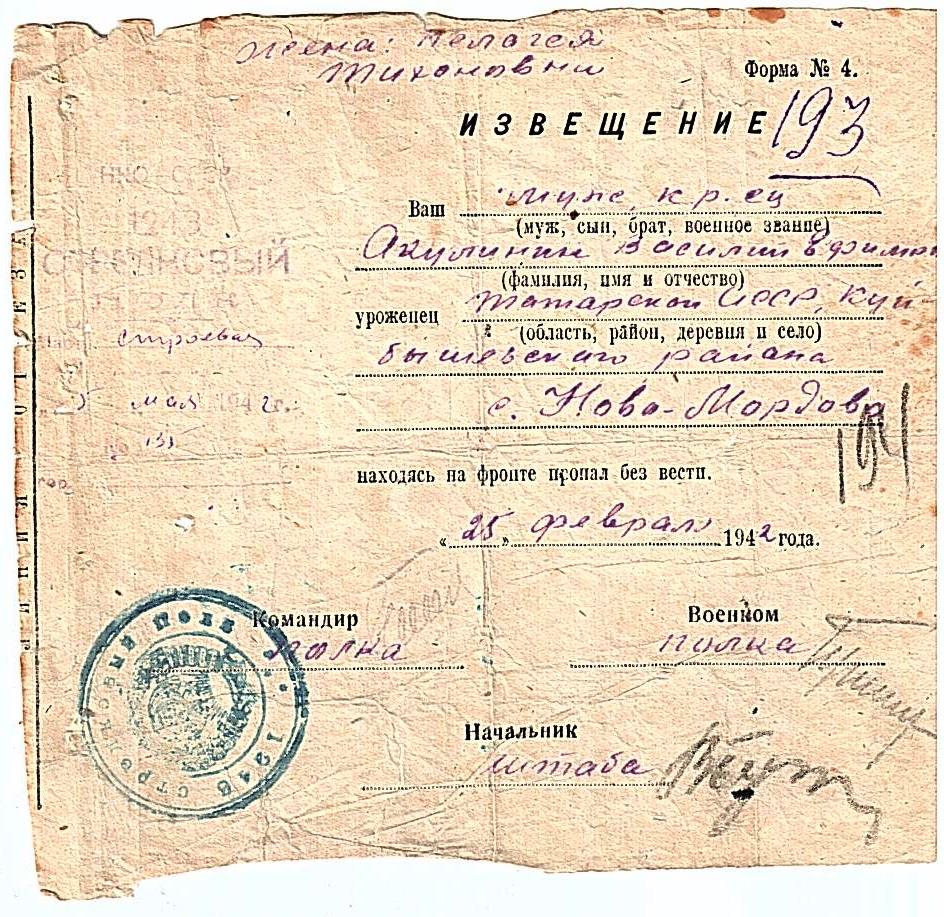 Жена: Пелагея
Тихоновна
Форма № 4.
ИЗВЕЩЕНИЕ 193
НКО-СССР
СТРЕЛКОВЫЙ
Ваш муж, кр.ец
(муж, сын, брат, военное звание)
Акулинин Василий
(фамилия, имя и отчество)
уроженец Татарской АССР, Куй-
(область, район, деревня и село)
бышевского района
с. Ново-Мордово
Строевая
мая 1942г.
191
находясь на фронте пропал без вести.
„25„ февраля 1942 года.
Командир
полка
Военком
полка
Начальник
штаба
ЛИНИЯ ОТРЕЗА
СТРЕЛКОВЫЙ ПОЛК